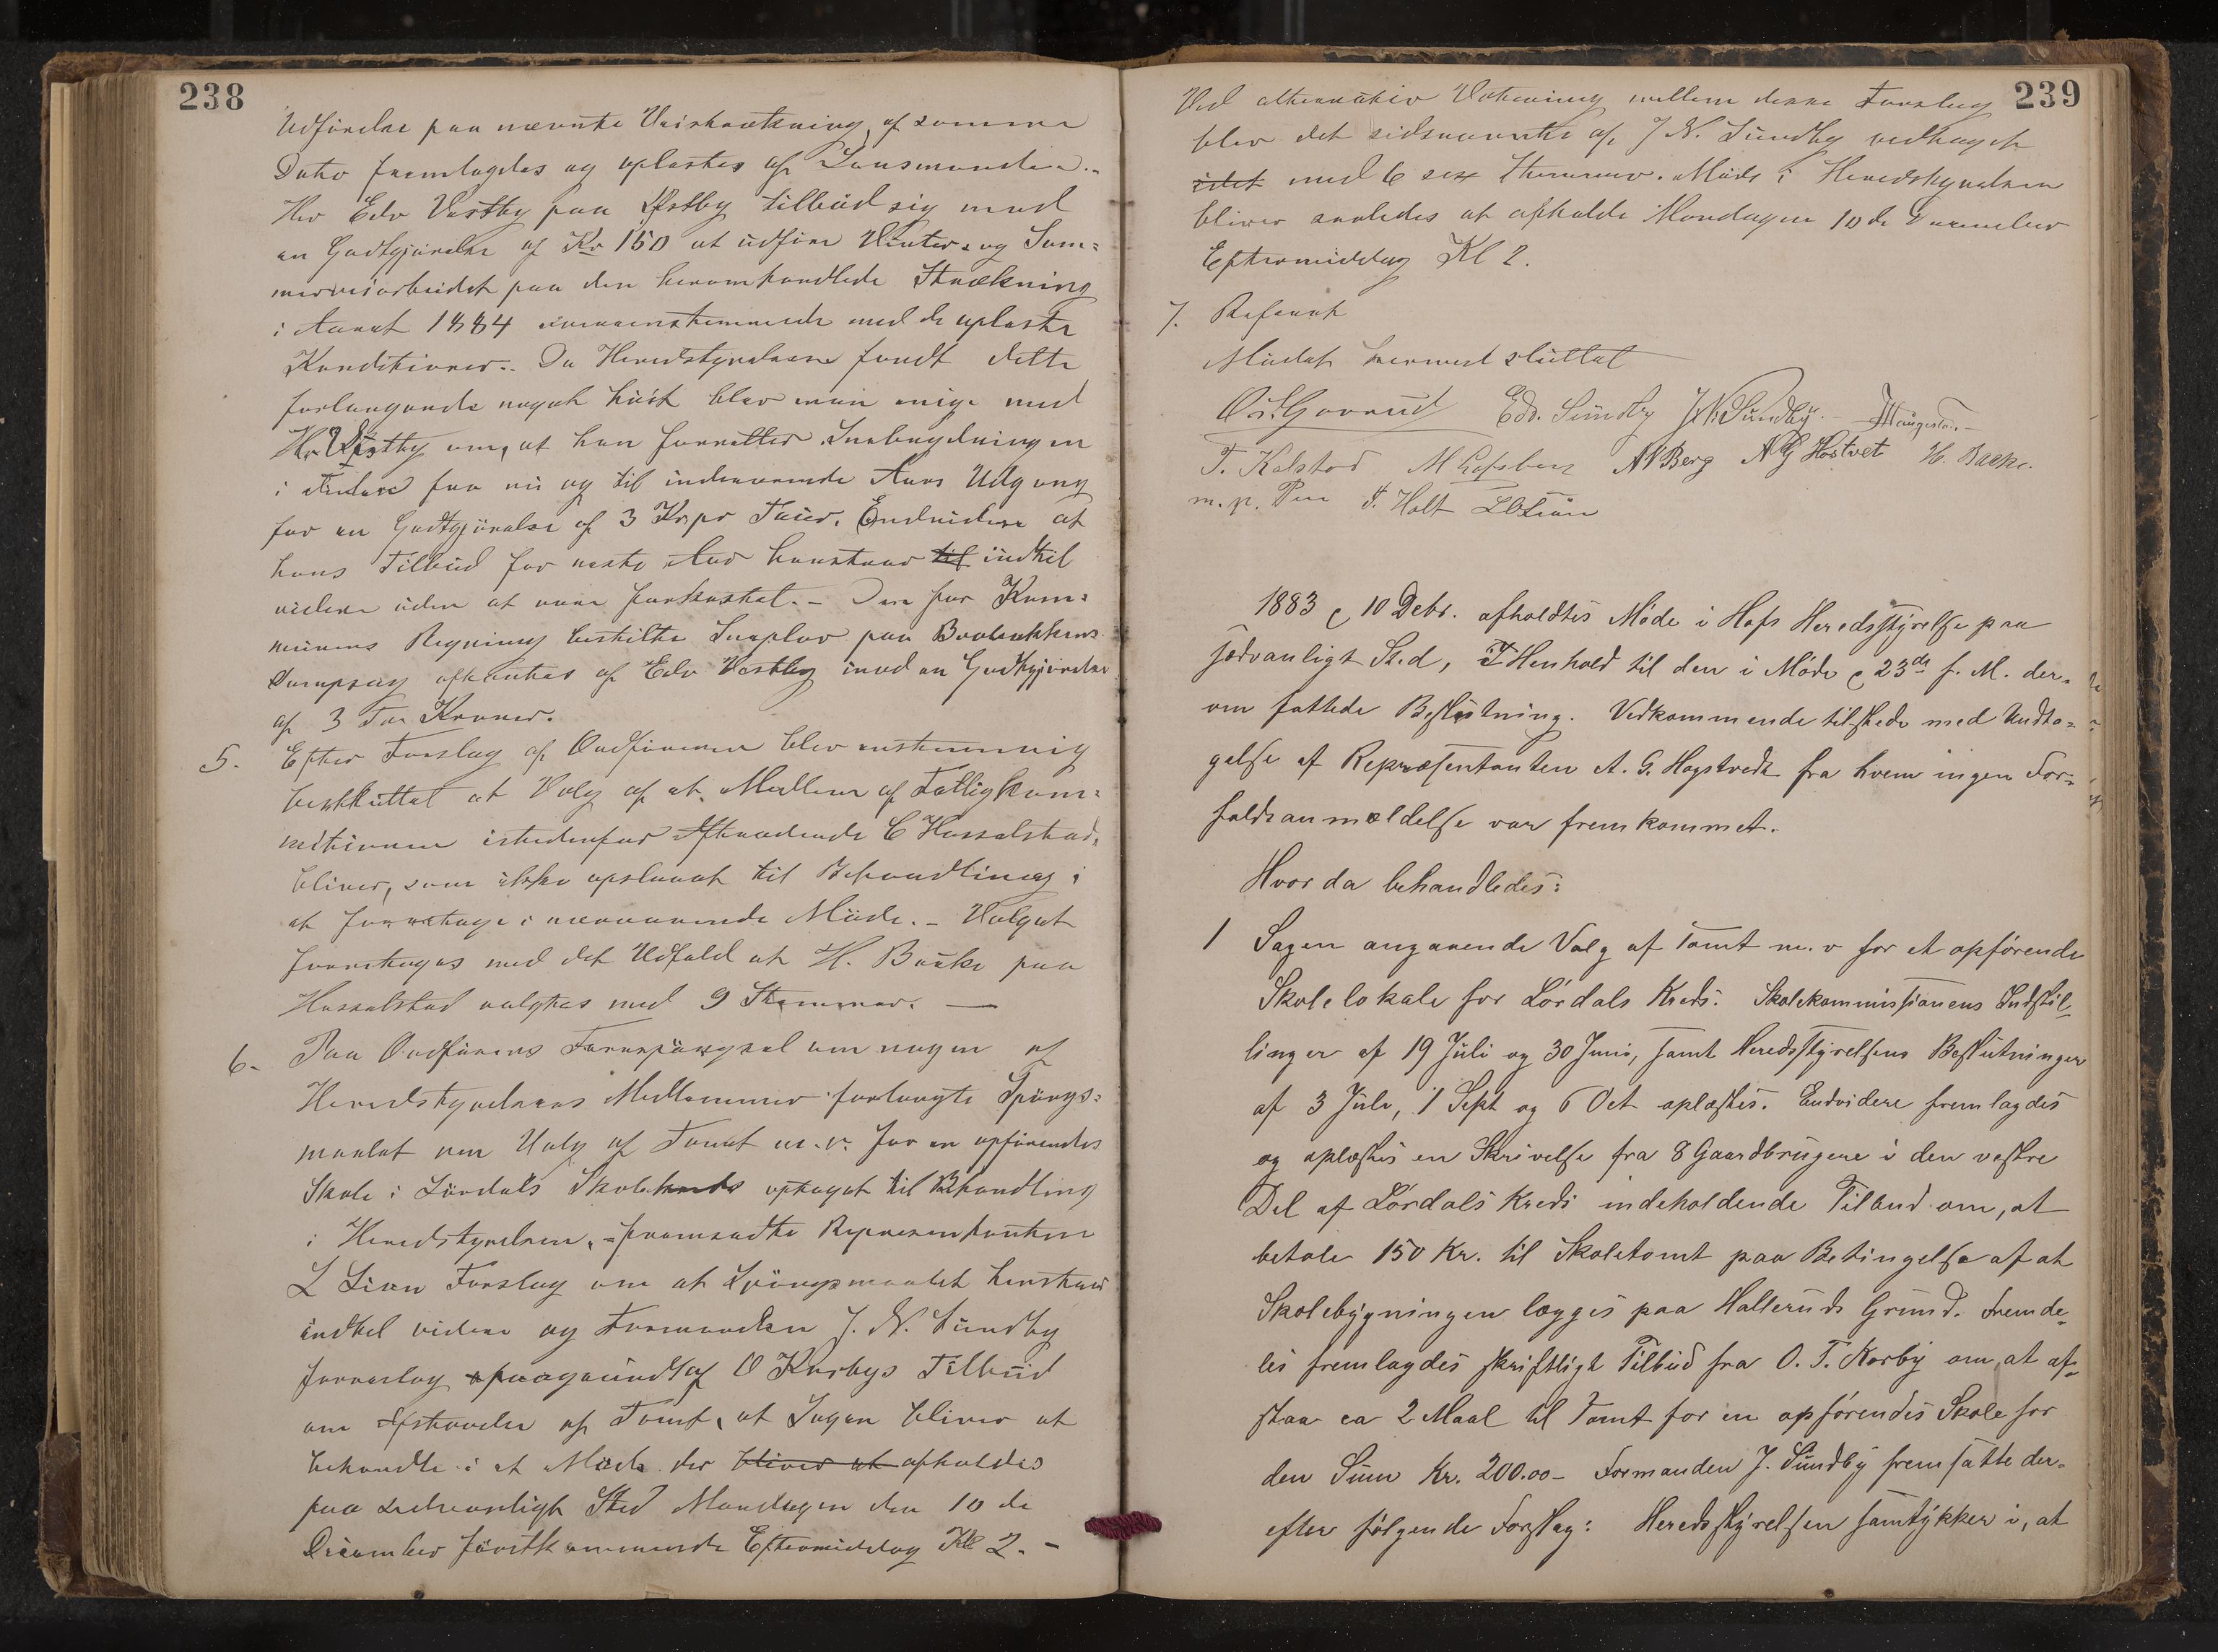 238
Udførelse paa nævnte Veistrækning af samme
Dato fremlagdes og oplæstes af Lensmanden.-
Hr Edv Vestby paa Østby tilbød sig mod
en Godtgjørelse af Kr 150 at udføre Vinter- og Som-
merveiarbeidet paa den heromhandlede Strækning
i Aaret 1884 overensstemmende med de oplæste
Konditioner.- Da Heredstyrelsen fandt dette
forlangende noget høit blev man enige med
Hr Vestby om, at han forretter Snebrydningen
i fra nu og til indeværende Aars Udgang
for en Godtgjørelse af 3 Kr pr Tour. Endvidere at
hans Tilbud for næste Aar henstaar til indtil
videre uden at være forkastet.- Den for Kom-
munens Regning bestilte Sneplov paa Brobækkens
Dampsag afhentes af Edv Vestby mod en Godtgjørelse
af 3 Tre Kroner.
5. Efter Forslag af Ordføreren blev enstemmig
besluttet at Valg af et Medlem af Fattigkom-
missionen istedenfor Aftrædende C Hasselstad,
bliver, som ikke opslaaet til Behandling i
at foretage i nærværende Møde.- Valget
foretoges med det Udfald at H. Bakke paa
Hasselstad valgtes med 9 Stemmer. —
6. Paa Ordførens Forespørgsel om nogen af
Heredstyrelsens Medlemmer forlangte Spørgs-
maalet om Valg af Tomt m.v. for en opførendes
Skole i Lørdals Skolekreds optaget til Behandling
i Heredstyrelsen, - fremsadte Repræsentanten
L Lien Forslag om at Spørgsmaalet henstaar
indtil videre og Formanden J. N. Sundby
foreslog paagrund af O Korbys Tilbud
om Afstaaelse af Tomt, at Sagen bliver at
behandle i et Møde der bliver at afholdes
paa sedvanligt Sted Mandagen den 10 de
December førstkommende Eftermiddag Kl 2.-
239
Ved alternativ Votering mellem disse Forslag
blev det sidstnævnte af J N. Sundby vedtaget
idet med 6 sex Stemmer. Møde i Heredstyrelsen
bliver saaledes at afholde Mandagen 10 de December
Eftermiddag Kl 2.
7. Referat
Mødet hermed sluttet
O. Gaarud Edv. Sundby J. N. Sundby.- Haugestad.-
T. Kolstad M Lofsberg A Berg A G Hostvet H. Bakke.
m. p. Pen T. Holt L O Lien
1883 c 10 Debr. afholdtes Møde i Hofs Heredsstyrelse paa
sedvanligt Sted, I Henhold til den i Møde c 23de f. M. der-
om fattede Beslutning. Vedkommende tilstede med Undta-
gelse af Repræsentanten A. G. Hogstvedt fra hvem ingen For-
faldsanmeldelse var fremkommet.
Hvor da behandledes:
1 Sagen angaaende Valg af Tomt m. v for et opførende
Skolelokale for Lørdals Kreds. Skolekommissionens Indstil-
linger af 19 Juli og 30 Juni, samt Heredsstyrelsens Beslutninger
af 3 Juli, 1 Sept og 6 Oct oplæstes. Endvidere fremlagdes
og oplæstes en Skrivelse fra 8 Gaardbrugere i den vestre
Del af Lørdals Kreds indeholdende Tilbud om, at
betale 150 Kr. til Skoletomt paa Betingelse af at
Skolebygningen lægges paa Halleruds Grund. Fremde-
les fremlagdes skriftligt Tilbud fra O. T. Korby om at af-
staa ca 2 Maal til Tomt for en opførendes Skole for
den Sum Kr. 200.00- Formanden J. Sundby fremsatte der-
efter følgende Forslag: Heredsstyrelsen samtykker i, at